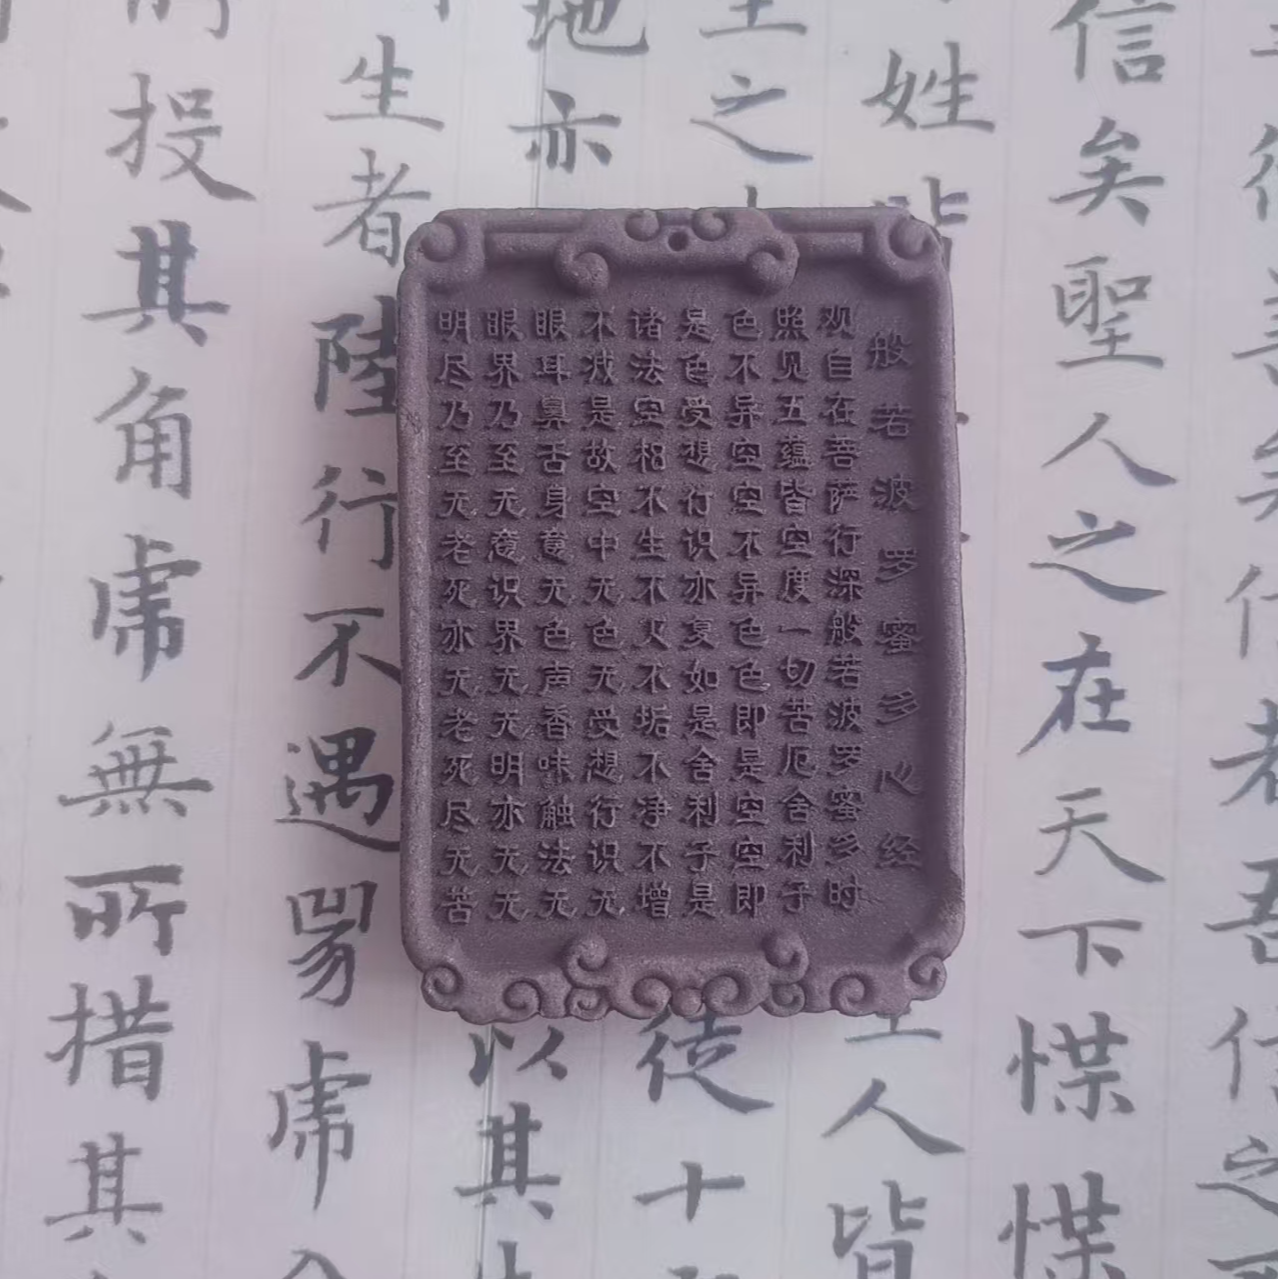 善矣信者吾信之
信矣聖人之在天下惵惵
姓皆
人皆
之
徒十
地亦
以其
生者陸行不遇兕虎
投其角虎無所措其
般若波罗蜜多心经
观自在菩萨行深般若波罗蜜多时
照见五蕴皆空度一切苦厄舍利子
色不异空空不异色色即是空空即
是色受想行识亦复如是舍利子是
诸法空相不生不灭不垢不净不增
不减是故空中无色无受想行识无
眼耳鼻舌身意无色声香味触法无
眼界乃至无意识界无无明亦无无
明尽乃至无老死亦无老死尽无苦